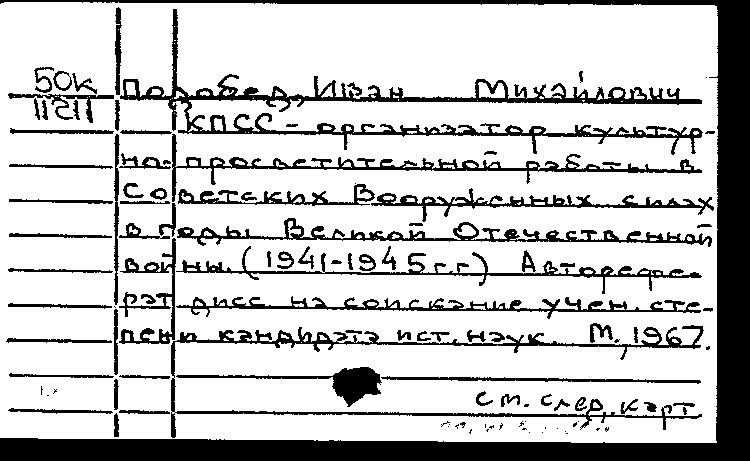 50к Подобед, Иван Михайлович
11211 "КПСС - организатор культур-
но-просветительной работы в
Советских Вооруженных силах
в годы Великой Отечественной
войны. (1941-1945 г.г.) Авторефе-
рат дисс. на соискание учен. сте-
пени кандидата ист. наук. М., 1967.
см. след. карт